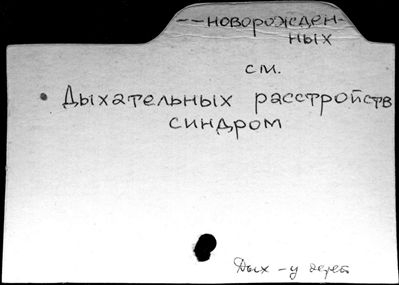 --новорожден-
ных
см.
• Дыхательных расстройств
синдром
Дых - у детей